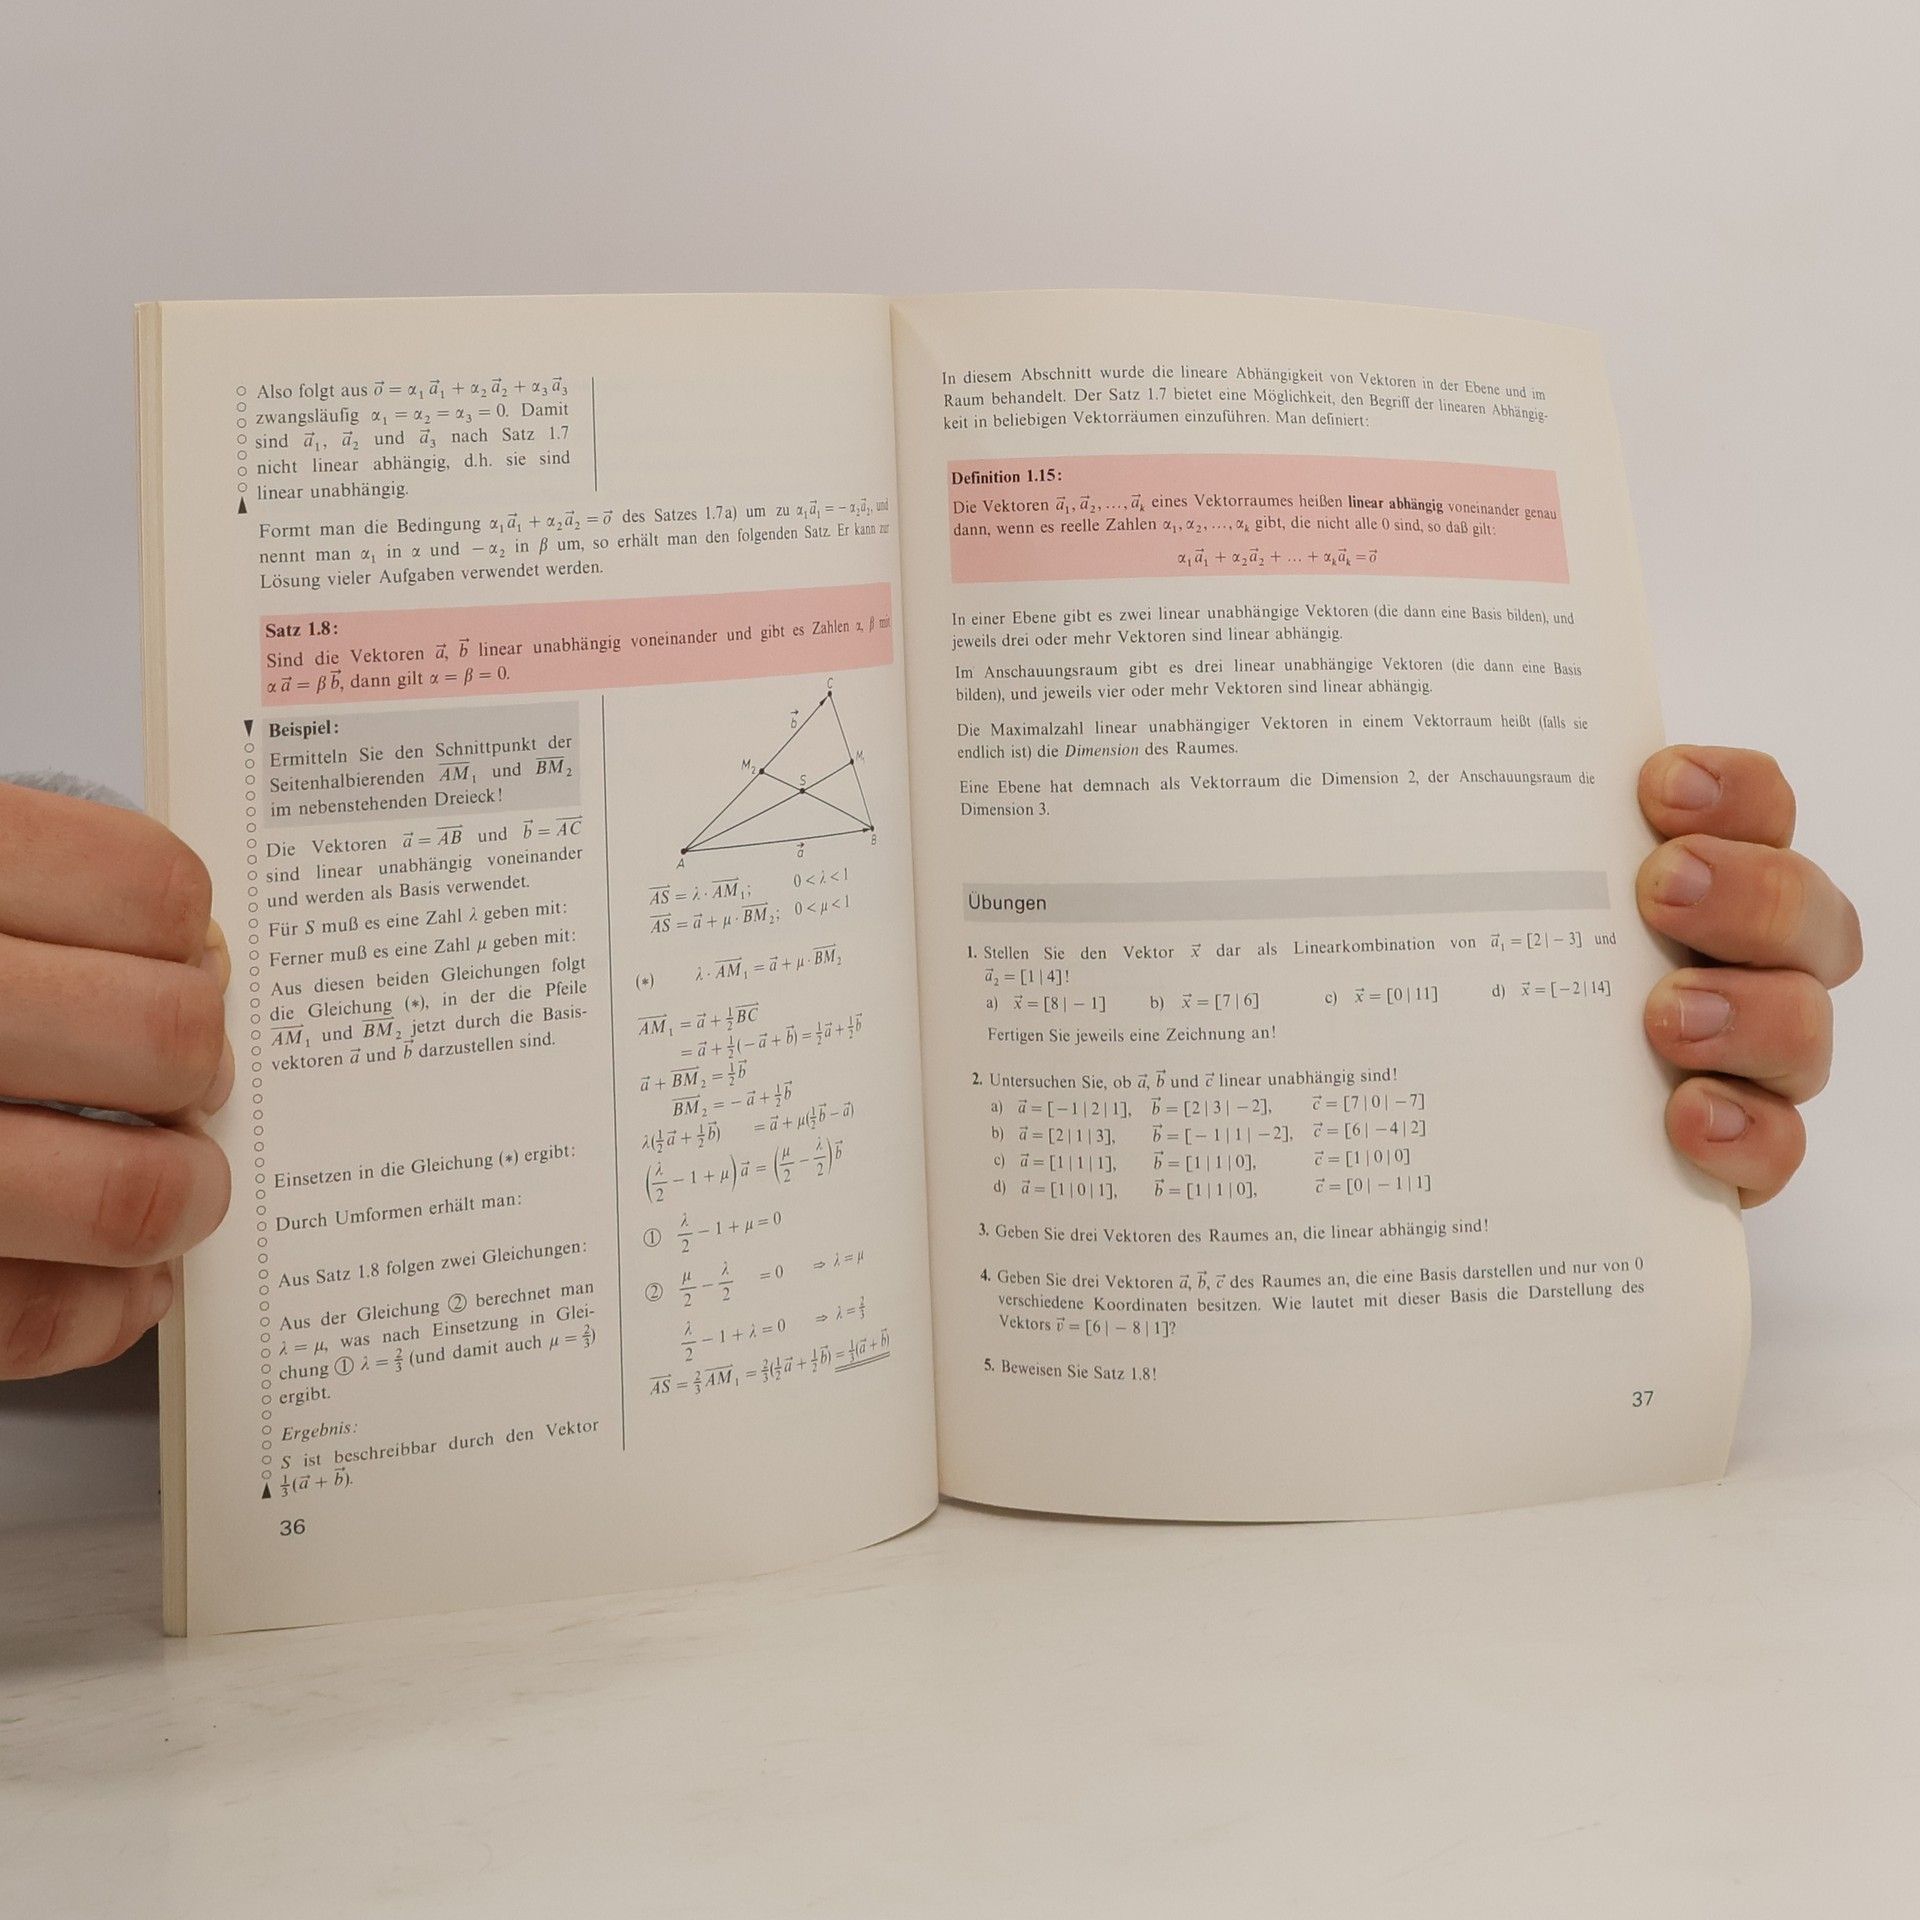 Also folgt aus o⃗ = α₁ a⃗₁ + α₂ a⃗₂ + α₃ a⃗₃
zwangsläufig α₁ = α₂ = α₃ = 0. Damit
sind a⃗₁, a⃗₂ und a⃗₃ nach Satz 1.7
nicht linear abhängig, d.h. sie sind
linear unabhängig.
Formt man die Bedingung α₁a⃗₁ + α₂a⃗₂ = o⃗ des Satzes 1.7a) um zu α₁a⃗₁ = − α₂a⃗₂, und
nennt man α₁ in α und − α₂ in β um, so erhält man den folgenden Satz. Er kann zur
Lösung vieler Aufgaben verwendet werden.
Satz 1.8:
Sind die Vektoren a⃗, b⃗ linear unabhängig voneinander und gibt es Zahlen α, β mit
α a⃗ = β b⃗, dann gilt α = β = 0.
Beispiel:
Ermitteln Sie den Schnittpunkt der
Seitenhalbierenden A͞M₁ und B͞M₂
im nebenstehenden Dreieck!
Die Vektoren a⃗ = A͞B und b⃗ = A͞C
sind linear unabhängig voneinander
und werden als Basis verwendet.
Für S muß es eine Zahl λ geben mit:
Ferner muß es eine Zahl μ geben mit:
Aus diesen beiden Gleichungen folgt
die Gleichung (∗), in der die Pfeile
A͞M₁ und B͞M₂ jetzt durch die Basis-
vektoren a⃗ und b⃗ darzustellen sind.
Einsetzen in die Gleichung (∗) ergibt:
Durch Umformen erhält man:
Aus Satz 1.8 folgen zwei Gleichungen:
Aus der Gleichung ② berechnet man
λ = μ, was nach Einsetzung in Glei-
chung ① λ = ⅔ (und damit auch μ = ⅔)
ergibt.
Ergebnis:
S ist beschreibbar durch den Vektor
⅓(a⃗ + b⃗).
36
C
b⃗
M₂
M₁
S
A
a⃗
B
A͞S = λ · A͞M₁; 0 < λ < 1
A͞S = a⃗ + μ · B͞M₂; 0 < μ < 1
(∗) λ · A͞M₁ = a⃗ + μ · B͞M₂
A͞M₁ = a⃗ + ½B͞C
= a⃗ + ½(− a⃗ + b⃗) = ½a⃗ + ½b⃗
a⃗ + B͞M₂ = ½b⃗
B͞M₂ = − a⃗ + ½b⃗
λ(½a⃗ + ½b⃗) = a⃗ + μ(½b⃗ − a⃗)
(λ/2 − 1 + μ) a⃗ = (μ/2 − λ/2) b⃗
① λ/2 − 1 + μ = 0
② μ/2 − λ/2 = 0 ⇒ λ = μ
λ/2 − 1 + λ = 0 ⇒ λ = ⅔
A͞S = ⅔ A͞M₁ = ⅔(½a⃗ + ½b⃗) = ⅓(a⃗ + b⃗)
In diesem Abschnitt wurde die lineare Abhängigkeit von Vektoren in der Ebene und im
Raum behandelt. Der Satz 1.7 bietet eine Möglichkeit, den Begriff der linearen Abhängig-
keit in beliebigen Vektorräumen einzuführen. Man definiert:
Definition 1.15:
Die Vektoren a⃗₁, a⃗₂, …, a⃗ₖ eines Vektorraumes heißen linear abhängig voneinander genau
dann, wenn es reelle Zahlen α₁, α₂, …, αₖ gibt, die nicht alle 0 sind, so daß gilt:
α₁a⃗₁ + α₂a⃗₂ + … + αₖa⃗ₖ = o⃗
In einer Ebene gibt es zwei linear unabhängige Vektoren (die dann eine Basis bilden), und
jeweils drei oder mehr Vektoren sind linear abhängig.
Im Anschauungsraum gibt es drei linear unabhängige Vektoren (die dann eine Basis
bilden), und jeweils vier oder mehr Vektoren sind linear abhängig.
Die Maximalzahl linear unabhängiger Vektoren in einem Vektorraum heißt (falls sie
endlich ist) die Dimension des Raumes.
Eine Ebene hat demnach als Vektorraum die Dimension 2, der Anschauungsraum die
Dimension 3.
Übungen
1. Stellen Sie den Vektor x⃗ dar als Linearkombination von a⃗₁ = [2 | − 3] und
a⃗₂ = [1 | 4]!
a) x⃗ = [8 | − 1] b) x⃗ = [7 | 6] c) x⃗ = [0 | 11] d) x⃗ = [− 2 | 14]
Fertigen Sie jeweils eine Zeichnung an!
2. Untersuchen Sie, ob a⃗, b⃗ und c⃗ linear unabhängig sind!
a) a⃗ = [− 1 | 2 | 1], b⃗ = [2 | 3 | − 2], c⃗ = [7 | 0 | − 7]
b) a⃗ = [2 | 1 | 3], b⃗ = [− 1 | 1 | − 2], c⃗ = [6 | − 4 | 2]
c) a⃗ = [1 | 1 | 1], b⃗ = [1 | 1 | 0], c⃗ = [1 | 0 | 0]
d) a⃗ = [1 | 0 | 1], b⃗ = [1 | 1 | 0], c⃗ = [0 | − 1 | 1]
3. Geben Sie drei Vektoren des Raumes an, die linear abhängig sind!
4. Geben Sie drei Vektoren a⃗, b⃗, c⃗ des Raumes an, die eine Basis darstellen und nur von 0
verschiedene Koordinaten besitzen. Wie lautet mit dieser Basis die Darstellung des
Vektors v⃗ = [6 | − 8 | 1]?
5. Beweisen Sie Satz 1.8!
37